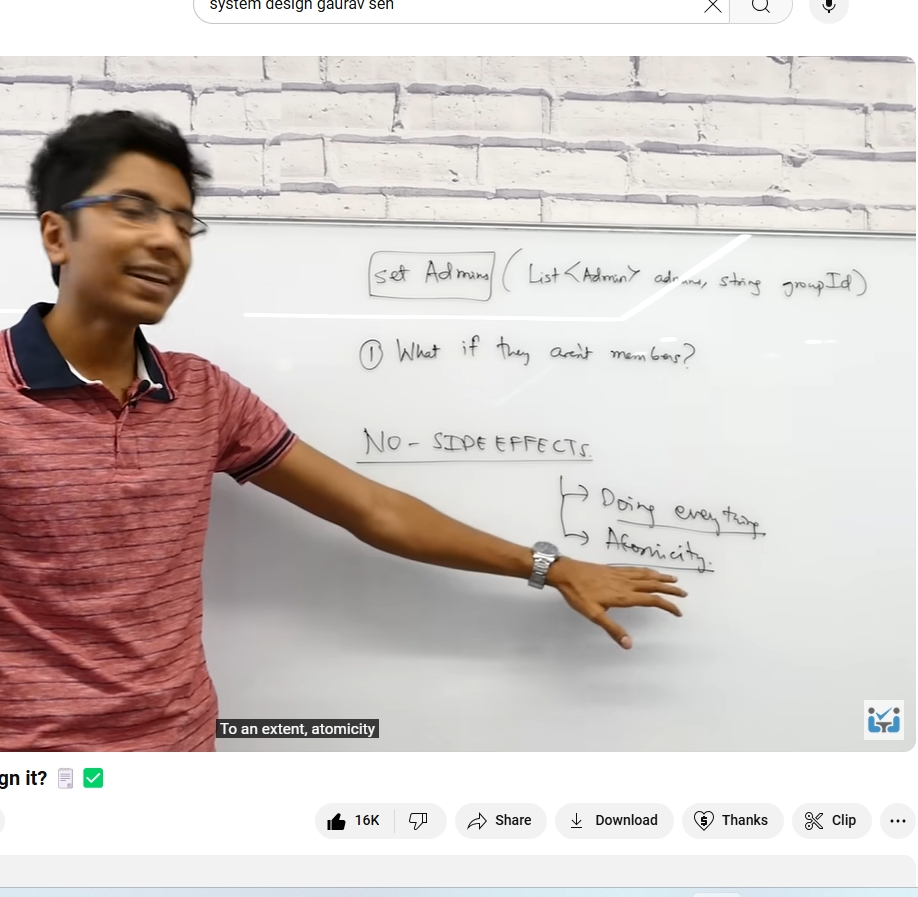 system design gaurav sen
set Admins ( List<Admin> admins, string groupId)
① What if they aren't members?
NO - SIDE EFFECTS.
Doing everything
Atomicity.
To an extent, atomicity
gn it?
16K
Share
Download
Thanks
Clip